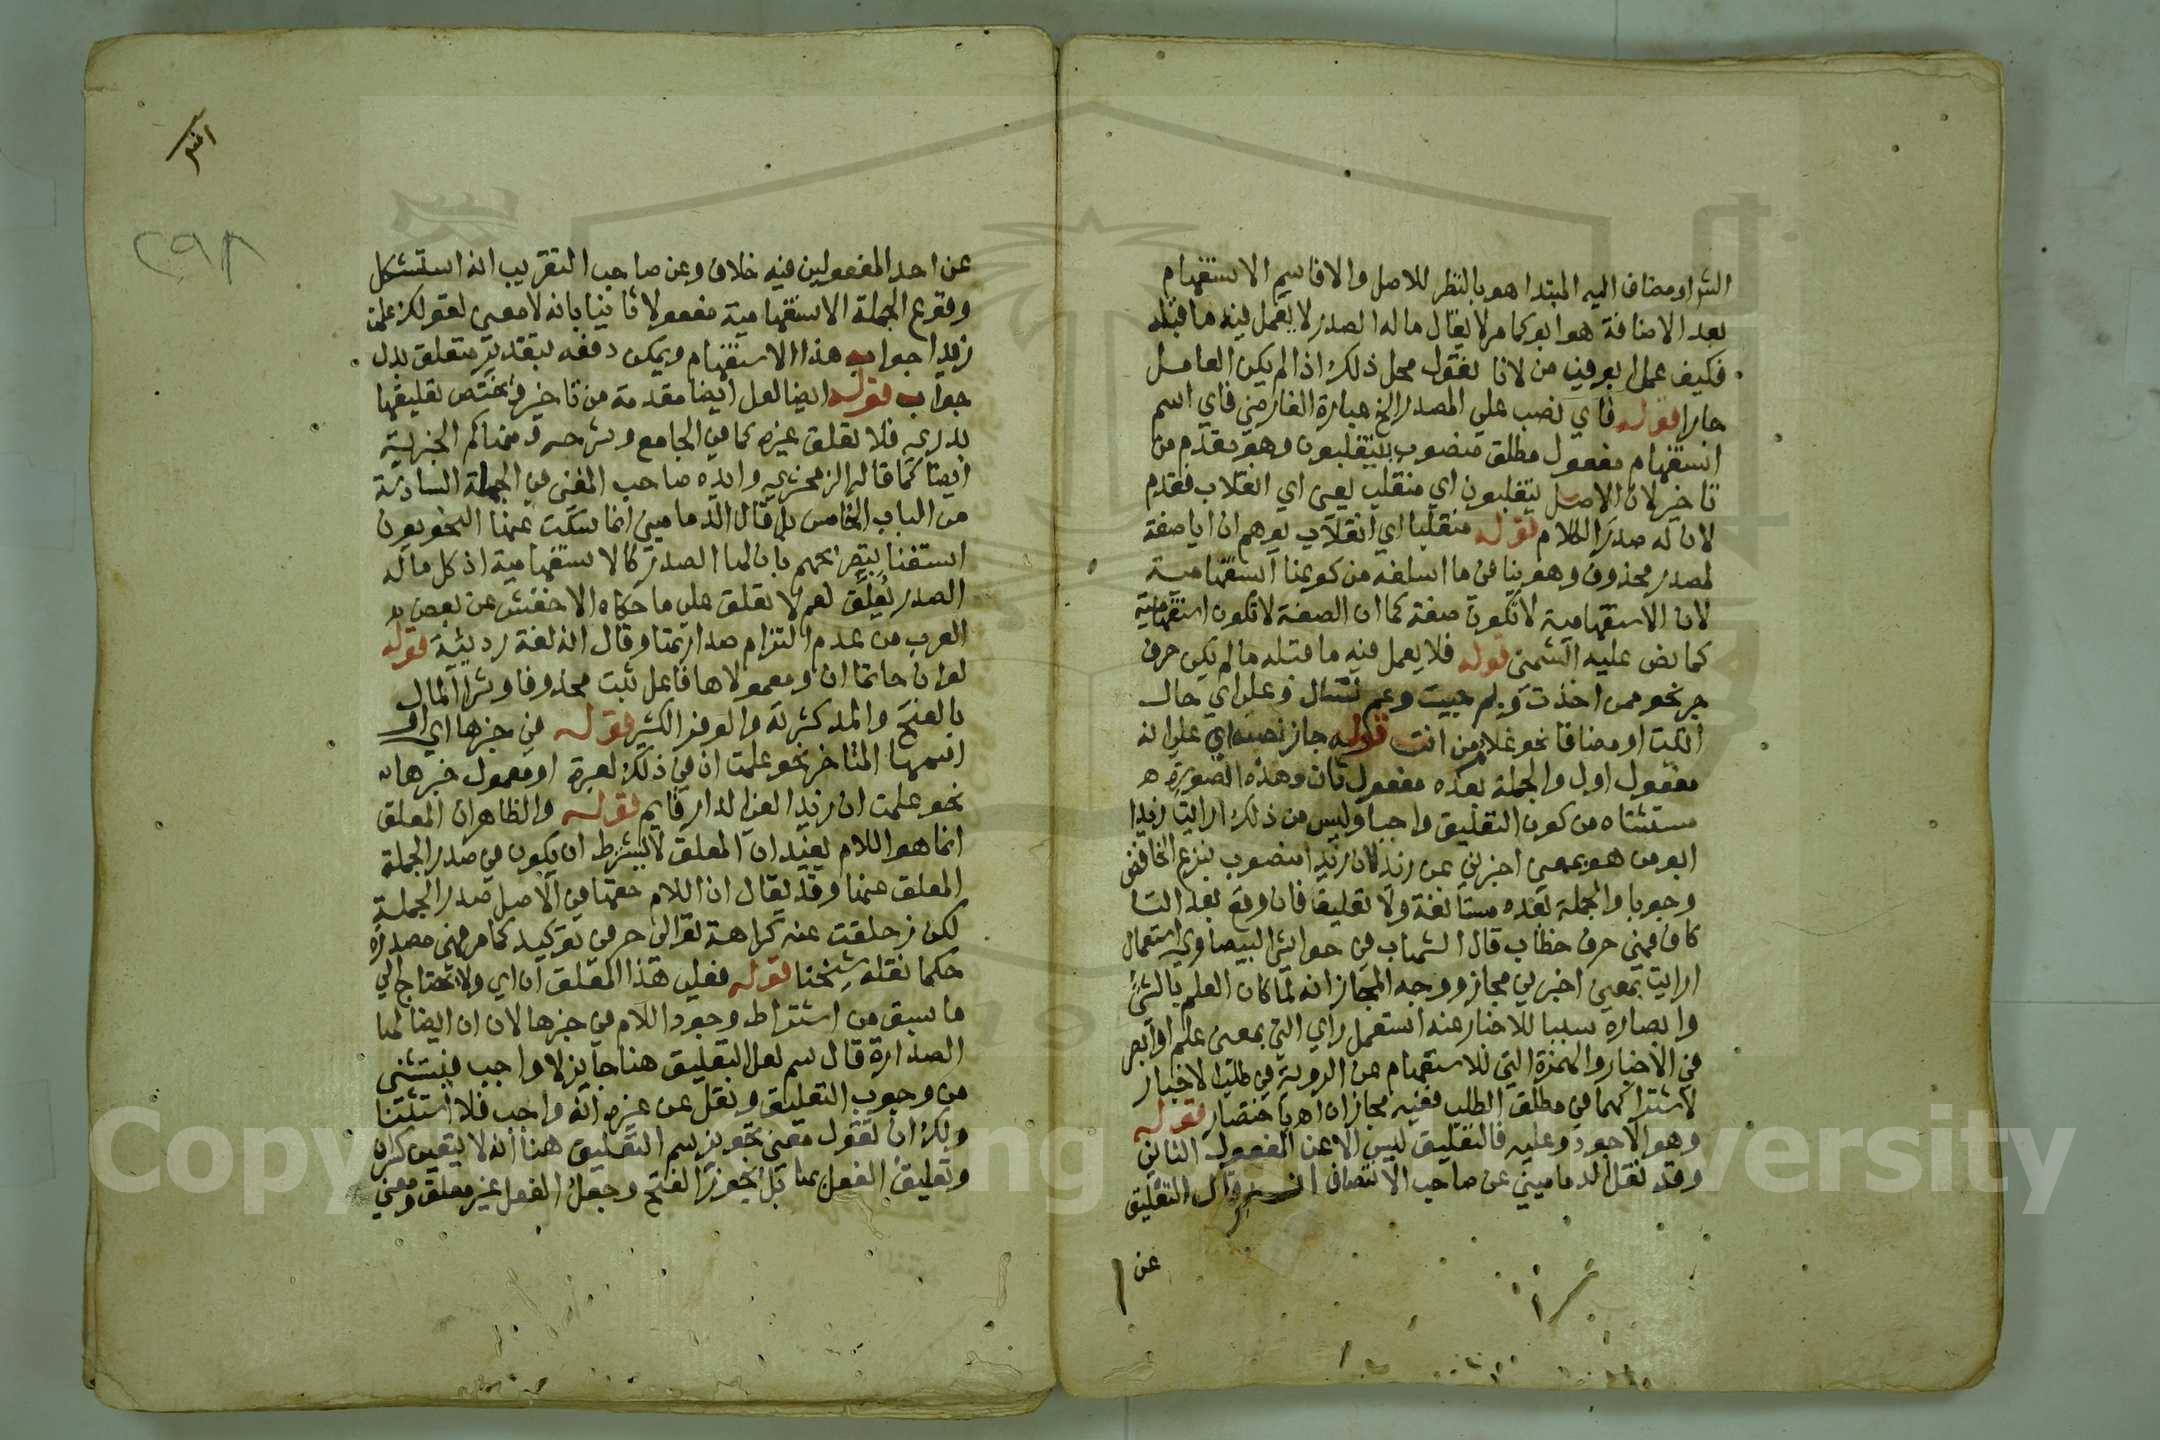 الشراو مضاف اليه المبتدا هو بالنظر للاصل والا فاسم الاستفهام
بعد الاضافة هو ابو كما مر لا يقال ماله الصدر لا يعمل فيه ما قبله
فكيف عمل ابو في من لانا نقول محل ذلك اذا لم يكن العامل
جارا قوله فاي نصب علي المصدر الخ عبارة الفارضي فاي اسم
استفهام مفعول مطلق منصوب بينقلبون وهو مقدم من
تاخير لان الاصل ينقلبون اي منقلب يعني اي انقلاب فقدم
لان له صدر الكلام قوله منقلبا اي انقلاب يوهم ان ايا صفة
لمصدر محذوف وهو ينافي ما اسلفه من كونها استفهامية
لان الاستفهامية لا تكون صفة كما ان الصفة لا تكون استفهامية
كما نص عليه الشمني قوله فلا يعمل فيه ما قبله ما لم يكن حرف
جر نحو ممن اخذت وبم جيت وعم تسال وعلي اي حال
انت او مضافا نحو غلام من انت قوله جاز نصبه اي علي انه
مفعول اول والجملة بعده مفعول ثان وهذه الصورة
مستثناه من كون التعليق واجبا وليس من ذلك ارايت زيدا
ابو من هو بمعني اخبرني عن زيد لان زيدا منصوب بنزع الخافض
وجوبا والجملة بعده مستانفة ولا تعليق فان وقع بعد التا
كاف فهي حرف خطاب قال الشهاب في حواشي البيضاوي استعمال
ارايت بمعني اخبرني مجاز ووجه المجاز انه لما كان العلم بالشي
وابصاره سببا للاخبار عنه استعمل راي التي بمعني علم او ابصر
في الاخبار والهمزة التي للاستفهام عن الروية في طلب الاخبار
لاشتراكهما في مطلق الطلب ففيه مجازان اه باختصار قوله
وهو الاجود وعليه فالتعليق ليس الا عن المفعول الثاني
وقد نقل الدماميني عن صاحب الانتصاف ان التعليق
عن
عن احد المفعولين فيه خلاف وعن صاحب التقريب انه استشكل
وقوع الجملة الاستفهامية مفعولا ثانيا بانه لا معني لقولك علمت
زيدا جواب هذا الاستفهام ويمكن دفعه بتقدير متعلق بدل
جواب قوله ايضا لعل ايضا مقدمة من تاخير ويختص تعليقها
بدري فلا تعلق غيره كما في الجامع وشرحه ومنها كم الخبرية
ايضا كما قاله الزمخشري وايده صاحب المغني في الجملة السادسة
من الباب الخامس بل قال الدماميني انما سكت عنها النحويون
استغنا بتصريحهم بان لها الصدر كالاستفهامية اذ كل ماله
الصدر يعلق نعم لا تعلق علي ما حكاه الاخفش عن بعض
العرب من عدم التزام صدارتها وقال انه لغة رديئة قوله
لو ان حاتما ان ومعمولاها فاعل ثبت محذوفا وثرا المال
بالفتح والمد كثرته والوفر الكثير قوله في خبرها اي او
اسمها المتاخر نحو علمت ان في ذلك لعبرة او معمول خبرها
نحو علمت ان زيدا لفي الدار قايم قوله والظاهر ان المعلق
انما هو اللام يفيد ان المعلق لا يشترط ان يكون في صدر الجملة
المعلق عنها وقد يقال ان اللام حقها في الاصل صدر الجملة
لكن زحلقت عنه كراهة توالي حرفي توكيد كما مر فهي مصدره
حكما نقله شيخنا قوله فعلي هذا المعلق ان اي ولا تحتاج الي
ما سبق من اشتراط وجود اللام في خبرها لان ان ايضا لها
الصدارة قال سم لعل التعليق هنا جايز لا واجب فيستثني
من وجوب التعليق ونقل عن غيره انه واجب فلا استثنا
ولك ان تقول معني تجويز سم التعليق هنا انه لا يتعين كسر ان
وتعليق الفعل بها بل يجوز الفتح وجعل الفعل غير معلق ومعني
٢٩٨
Copyright © King Saud University